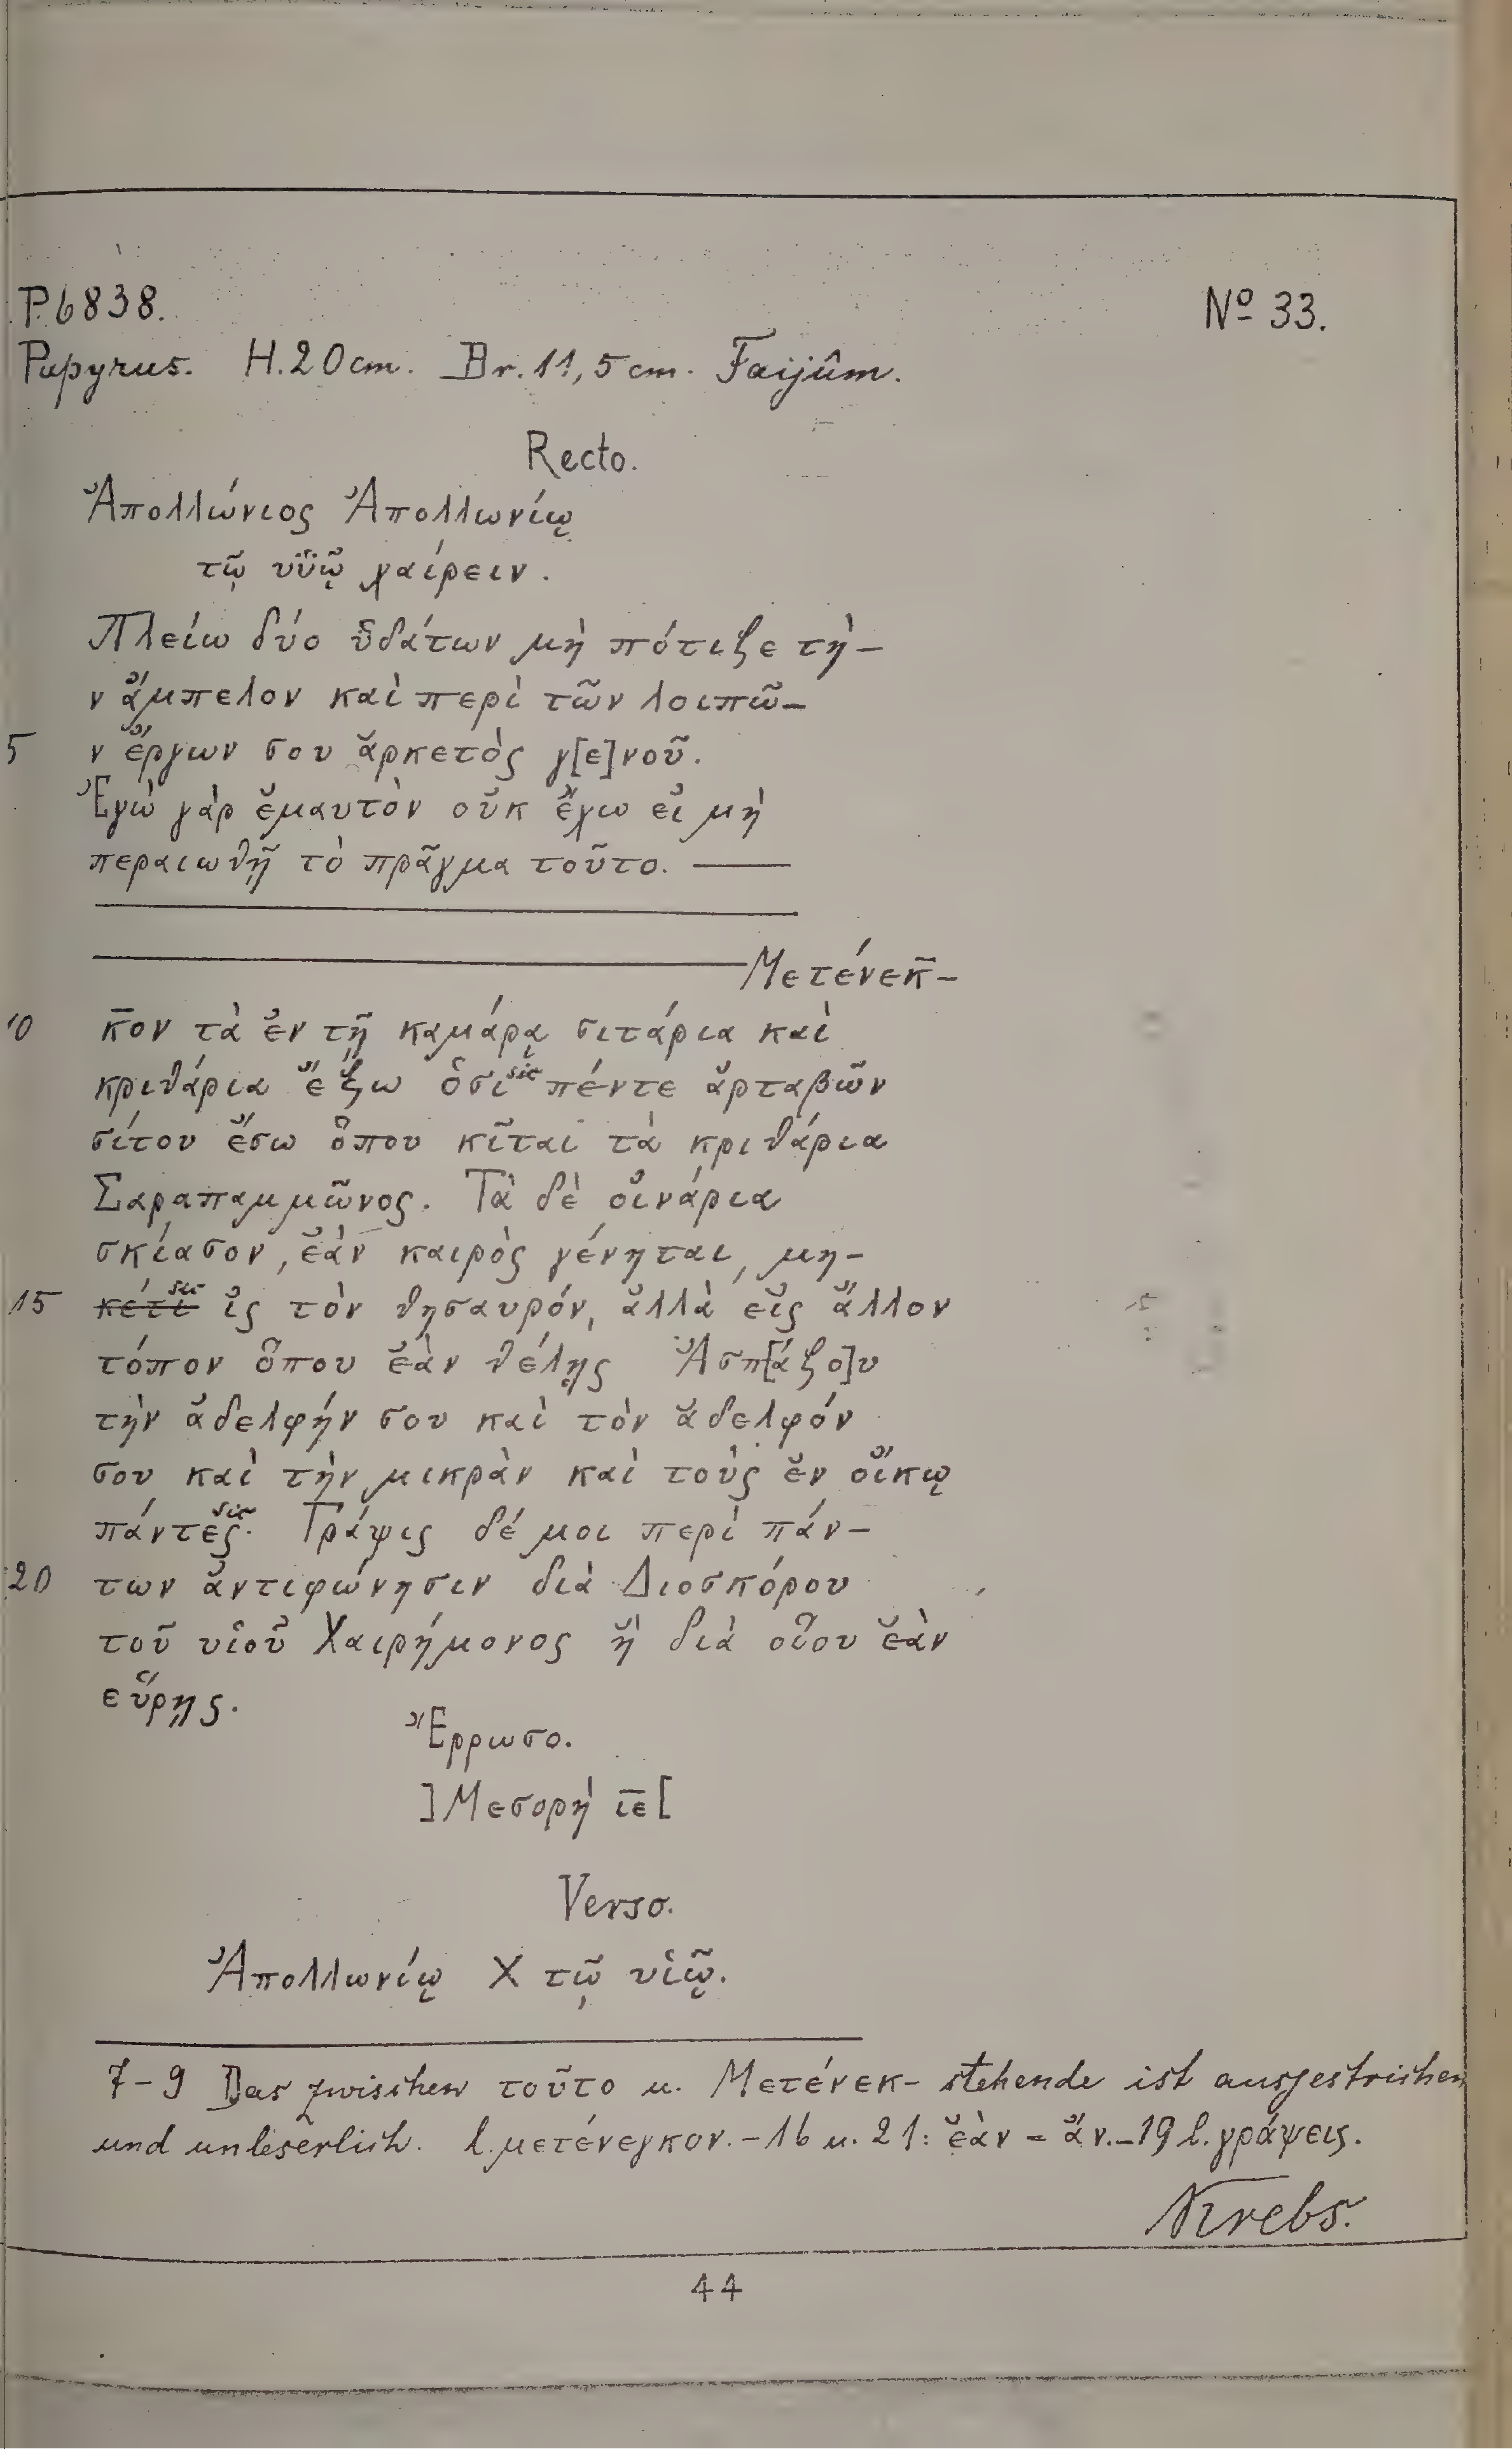 P. 6838.
Nº 33.
Papyrus. H. 20 cm. Br. 11,5 cm. Faijûm.
Recto.
Ἀπολλώνιος Ἀπολλωνίῳ
τῷ υἱῷ χαίρειν.
Πλείω δύο ὑδάτων μὴ πότιζε τὴ-
ν ἄμπελον καὶ περὶ τῶν λοιπῶ-
5 ν ἔργων σου ἀρκετὸς γ[ε]νοῦ.
Ἐγὼ γὰρ ἐμαυτὸν οὐκ ἔχω εἰ μὴ
περαιωθῇ τὸ πρᾶγμα τοῦτο. —
— Μετένεκ̅-
10 κ̅ον τὰ ἐν τῇ καμάρᾳ σιτάρια καὶ
κριθάρια ἔξω ὁσὶ sic πέντε ἀρταβῶν
σίτου ἔσω ὅπου κῖται τὰ κριθάρια
Σαραπαμμῶνος. Τὰ δὲ οἰνάρια
σκίασον, ἐὰν καιρὸς γένηται, μη-
15 κέτι sic ἰς τὸν θησαυρόν, ἀλλὰ εἰς ἄλλον
τόπον ὅπου ἐὰν θέλῃς Ἀσπ[άζο]υ
τὴν ἀδελφήν σου καὶ τὸν ἀδελφόν
σου καὶ τὴν μικρὰν καὶ τοὺς ἐν οἴκῳ
πάντες sic. Γράψις δέ μοι περὶ πάν-
20 των ἀντιφώνησιν διὰ Διοσκόρου
τοῦ υἱοῦ Χαιρήμονος ἢ διὰ οἵου ἐὰν
εὕρῃς.
Ἔρρωσο.
] Μεσορὴ ι̅ε̅ [
Verso.
Ἀπολλωνίῳ X τῷ υἱῷ.
7-9 Das zwischen τοῦτο u. Μετένεκ- stehende ist ausgestrichen
und unleserlich. l. μετένεγκον. - 16 u. 21: ἐὰν = ἄν. - 19 l. γράψεις.
Krebs.
44